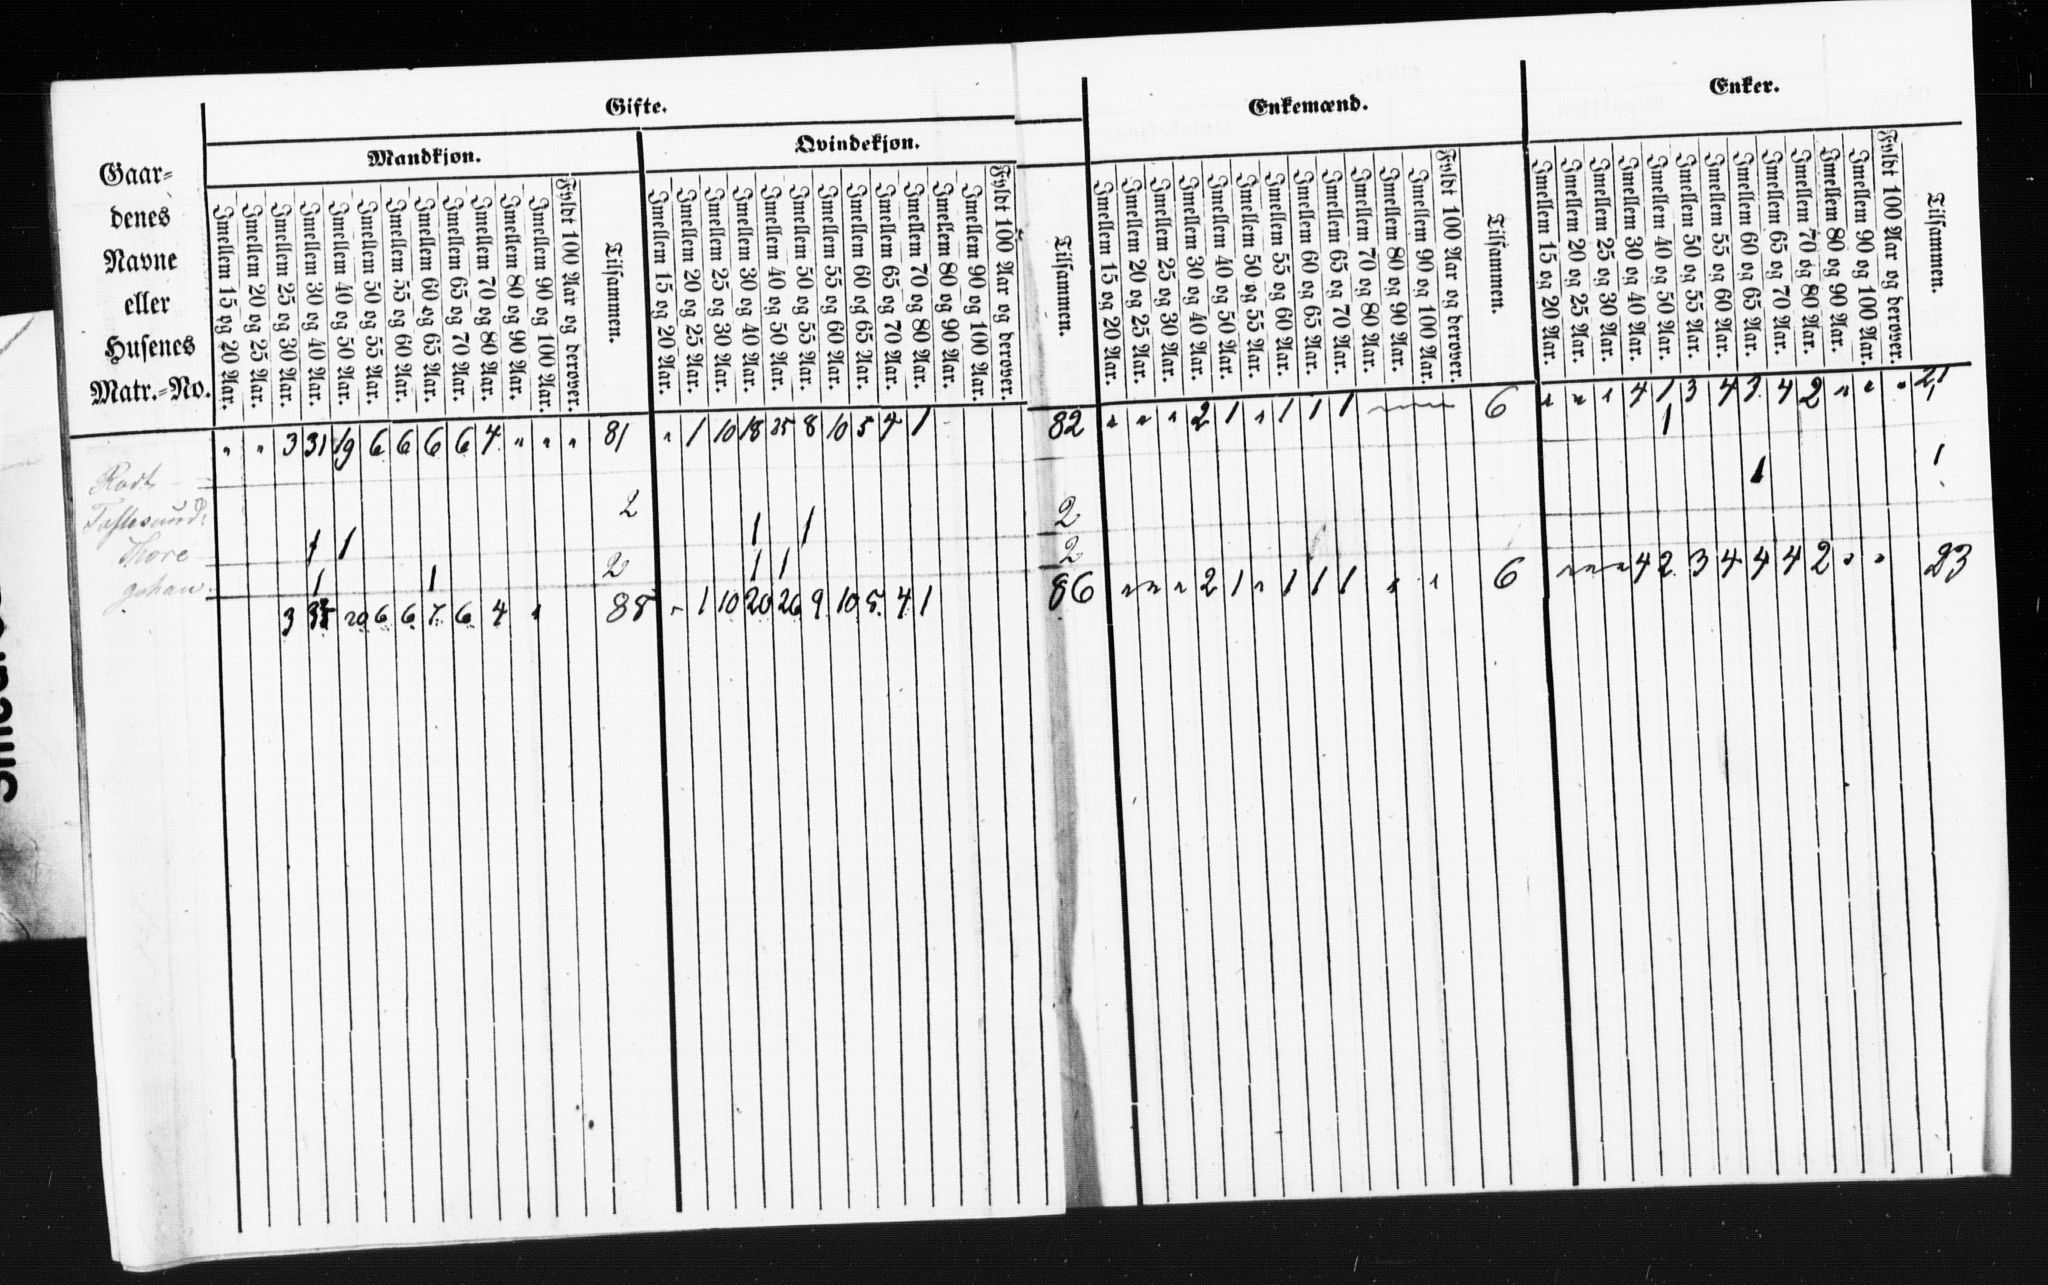 Gifte. Enkemænd. Enker.
Mandkjøn. Qvindekjøn.
Gaar=
denes
Navne
eller
Husenes
Matr.=No.
Imellem 15 og 20 Aar.
Imellem 20 og 25 Aar.
Imellem 25 og 30 Aar.
Imellem 30 og 40 Aar.
Imellem 40 og 50 Aar.
Imellem 50 og 55 Aar.
Imellem 55 og 60 Aar.
Imellem 60 og 65 Aar.
Imellem 65 og 70 Aar.
Imellem 70 og 80 Aar.
Imellem 80 og 90 Aar.
Imellem 90 og 100 Aar.
Fyldt 100 Aar og derover.
Tilsammen.
Imellem 15 og 20 Aar.
Imellem 20 og 25 Aar.
Imellem 25 og 30 Aar.
Imellem 30 og 40 Aar.
Imellem 40 og 50 Aar.
Imellem 50 og 55 Aar.
Imellem 55 og 60 Aar.
Imellem 60 og 65 Aar.
Imellem 65 og 70 Aar.
Imellem 70 og 80 Aar.
Imellem 80 og 90 Aar.
Imellem 90 og 100 Aar.
Fyldt 100 Aar og derover.
Tilsammen.
Imellem 15 og 20 Aar.
Imellem 20 og 25 Aar.
Imellem 25 og 30 Aar.
Imellem 30 og 40 Aar.
Imellem 40 og 50 Aar.
Imellem 50 og 55 Aar.
Imellem 55 og 60 Aar.
Imellem 60 og 65 Aar.
Imellem 65 og 70 Aar.
Imellem 70 og 80 Aar.
Imellem 80 og 90 Aar.
Imellem 90 og 100 Aar.
Fyldt 100 Aar og derover.
Tilsammen.
Imellem 15 og 20 Aar.
Imellem 20 og 25 Aar.
Imellem 25 og 30 Aar.
Imellem 30 og 40 Aar.
Imellem 40 og 50 Aar.
Imellem 50 og 55 Aar.
Imellem 55 og 60 Aar.
Imellem 60 og 65 Aar.
Imellem 65 og 70 Aar.
Imellem 70 og 80 Aar.
Imellem 80 og 90 Aar.
Imellem 90 og 100 Aar.
Fyldt 100 Aar og derover.
Tilsammen.
" " 3 31 19 6 6 6 6 4 " " " 81 " 1 10 18 25 8 10 5 4 1 82 " " " 2 1 " 1 1 1 6 " " " 4 1 3 4 3 4 2 " " " 21
1
1 1
1 1 2 1 1 2
Thore 1 1 2 1 1 2
3 20 6 6 7 6 4 " 85 " 1 10 20 26 9 10 5 4 1 86 " " " 2 1 " 1 1 1 " " 6 " " " 4 2 3 4 4 4 2 " " 23